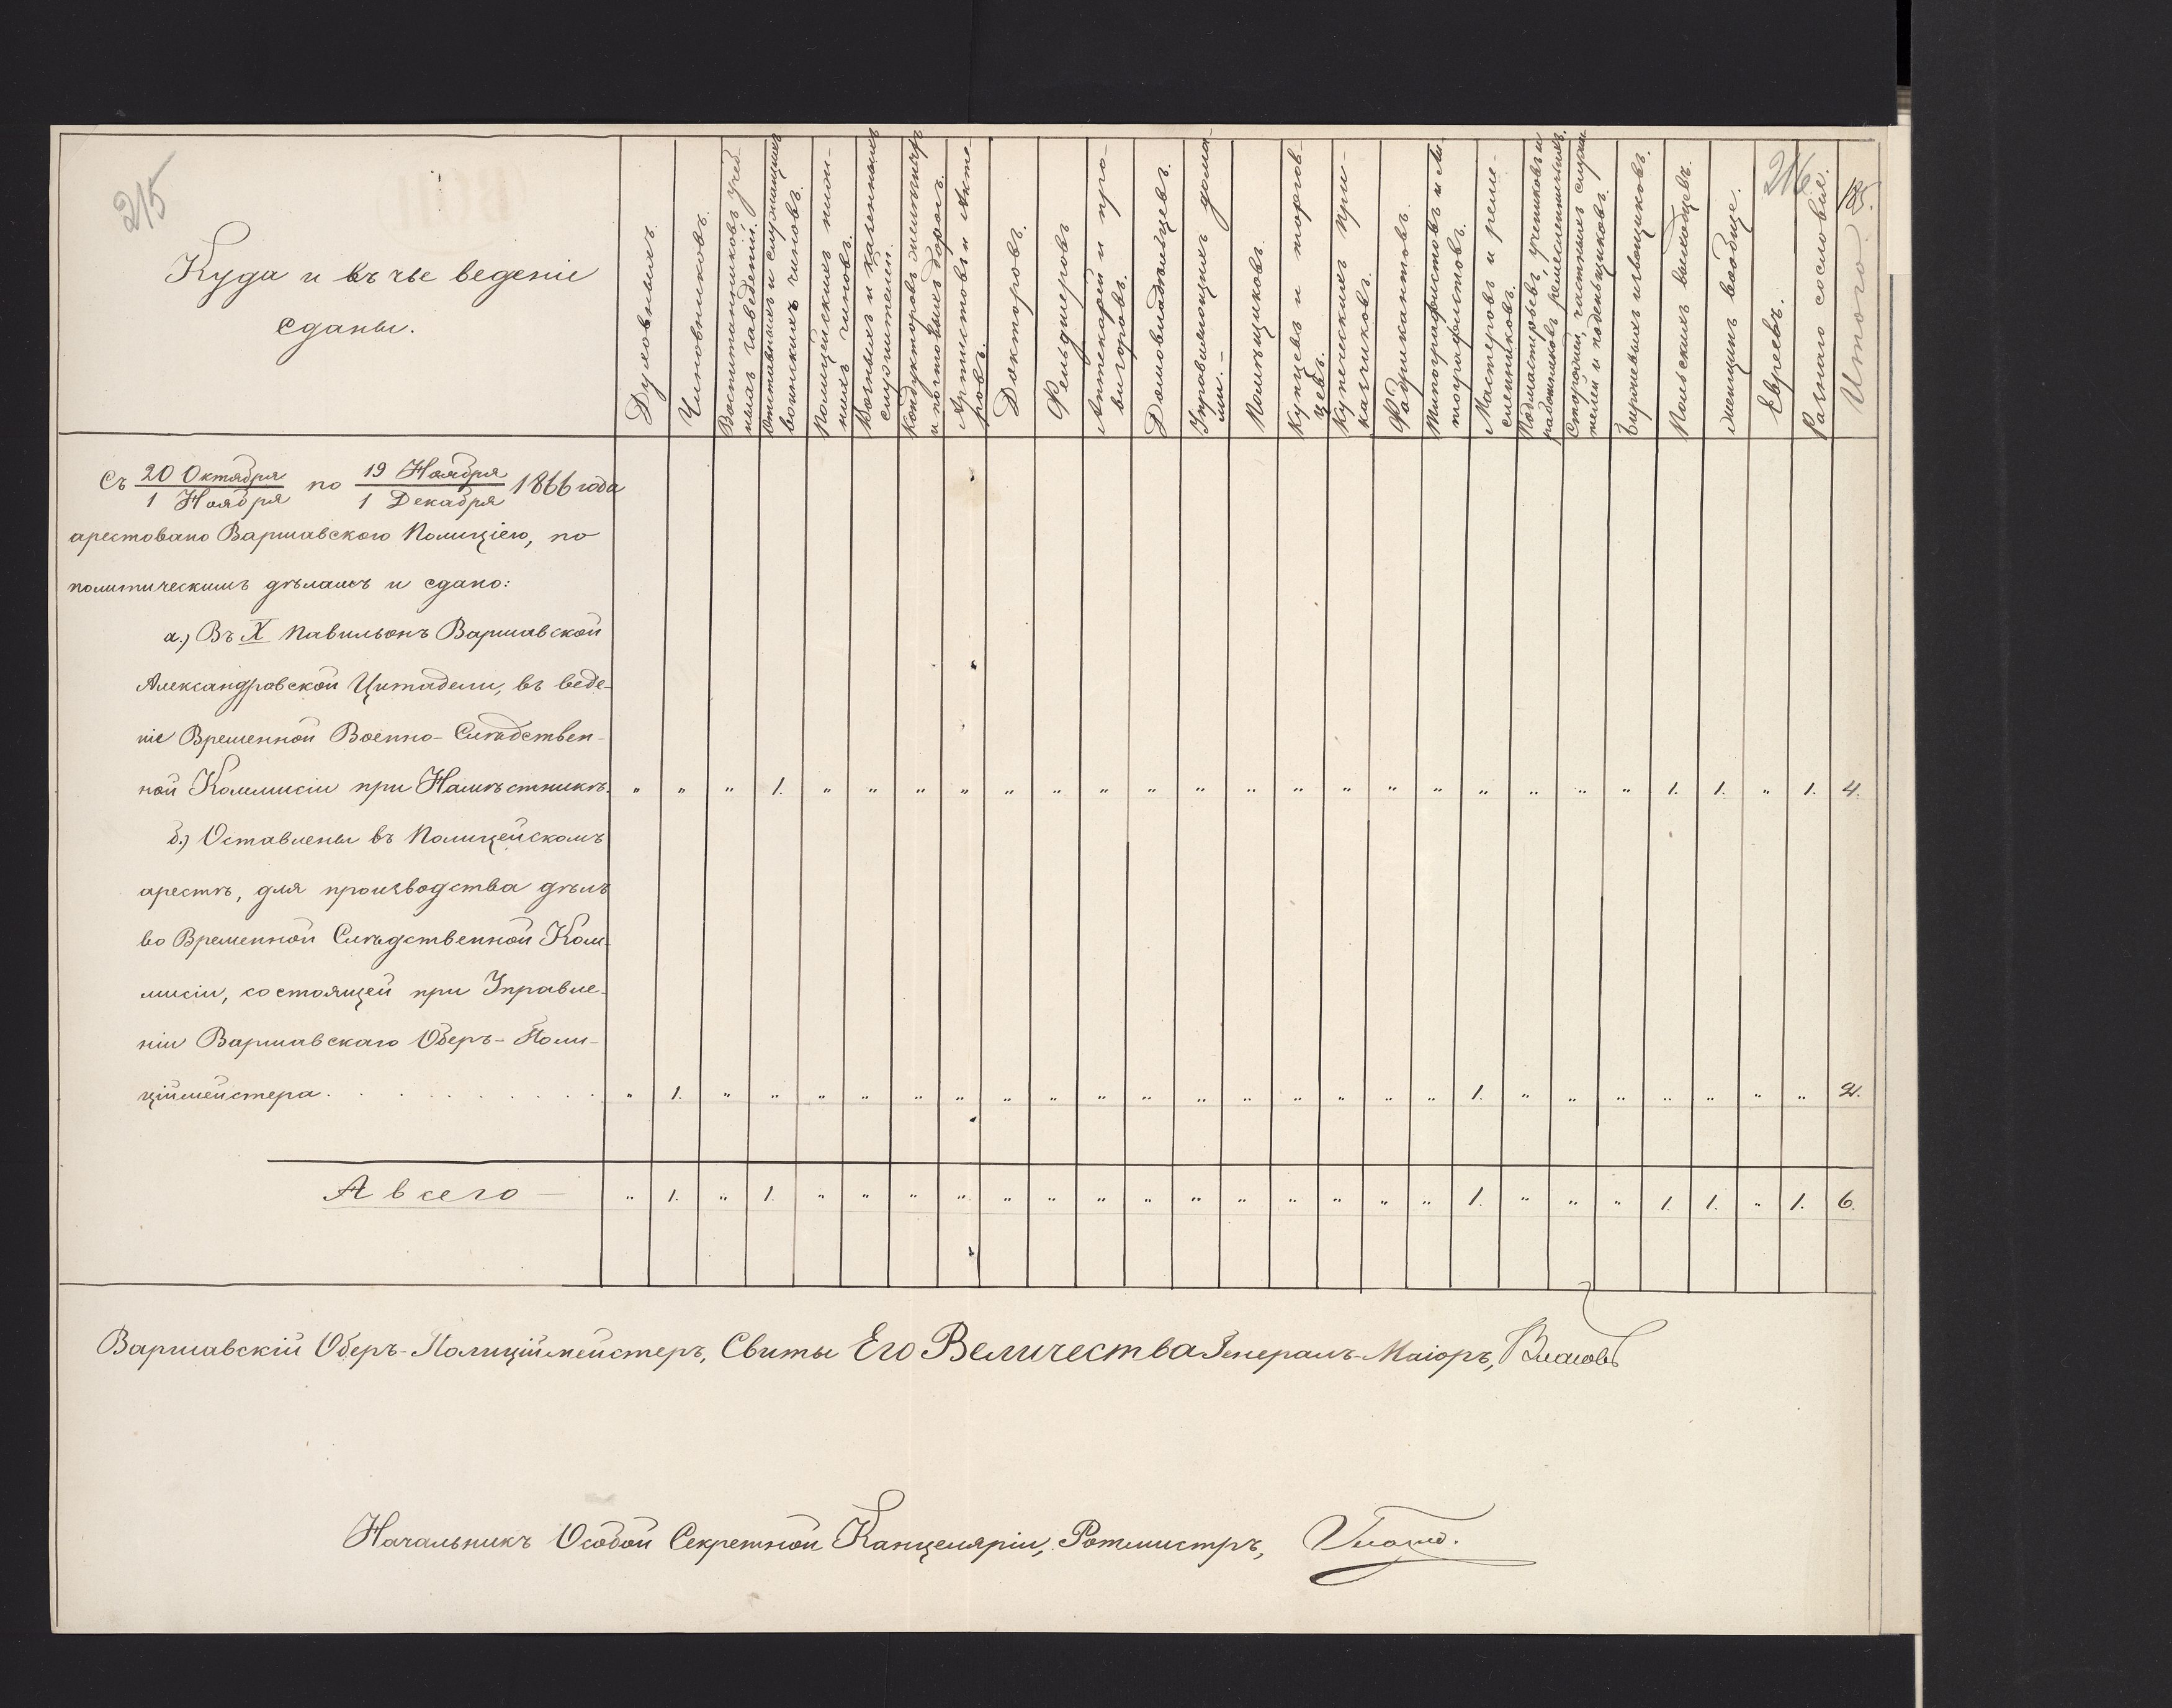 215
216
185.
Куда и въ чье веденіе
сданы.
Духовныхъ.
Чиновниковъ.
Воспитанниковъ учеб-
ныхъ заведеній.
Отставныхъ и служащихъ
воинскихъ чиновъ.
Полицейскихъ ниж-
нихъ чиновъ.
Вольныхъ и казенныхъ
служителей.
Кондукторовъ желѣзныхъ
и почтовыхъ дорогъ.
Артистовъ и Акте-
ровъ.
Докторовъ.
Фельдшеровъ
Аптекарей и про-
визоровъ.
Домовладѣльцевъ.
Управляющихъ дома-
ми. –
Помѣщиковъ.
Купцевъ и торгов-
цевъ.
Купеческихъ при-
кащиковъ.
Фабрикантовъ.
Типографистовъ и Ли-
тографистовъ.
Мастеровъ и реме-
сленниковъ.
Подмастерьевъ, учениковъ и
работниковъ ремесленничихъ.
Сторожей, частныхъ служи-
телей и поденьщиковъ.
Биржевыхъ извощиковъ.
Польскихъ выходцевъ.
Женщинъ вообще.
Евреевъ.
Разнаго сословія.
Итого
Съ 20 Октября / 1 Ноября по 19 Ноября / 1 Декабря 1866 года
арестовано Варшавскою Полиціею, по
политическимъ дѣламъ и сдано:
а.) Въ X Павильонъ Варшавской
Александровской Цитадели, въ веде-
ніе Временной Военно-Слѣдствен-
ной Коммисіи при Намѣстникѣ. „ „ „ 1. „ „ „ „ „ „ „ „ „ „ „ „ „ „ „ „ „ „ 1. 1. „ 1. 4.
б.) Оставлены въ Полицейскомъ
арестѣ, для производства дѣлъ
во Временной Слѣдственной Ком-
мисіи, состоящей при Управле-
ніи Варшавскаго Оберъ-Поли-
ціймейстера. . . . . . . . . . . „ 1. „ „ „ „ „ „ „ „ „ „ „ „ „ „ „ „ 1. „ „ „ „ „ „ „ 2.
А всего – „ 1. „ 1. „ „ „ „ „ „ „ „ „ „ „ „ „ „ 1. „ „ „ 1. 1. „ 1. 6.
Варшавскій Оберъ-Полиціймейстеръ, Свиты Его Величества Генералъ-Маіоръ, Власовъ
Начальникъ Особой Секретной Канцеляріи, Ротмистръ,